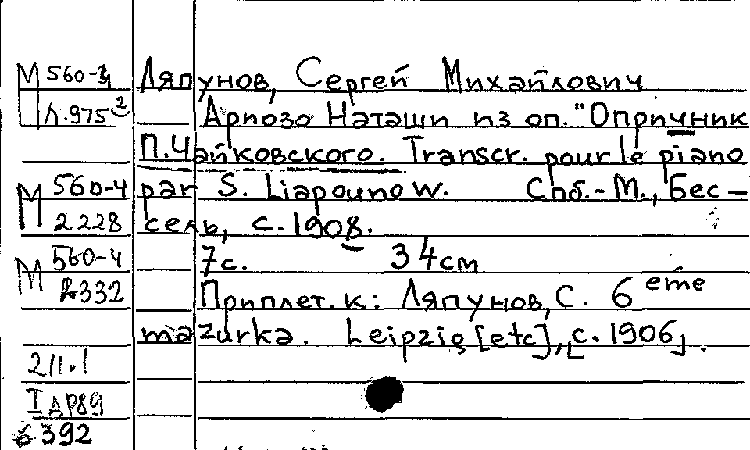 М 560-3 Ляпунов, Сергей Михайлович
Л.975² Ариозо Наташи из оп. "Опричник
П.Чайковского. Transcr. pour le piano
М 560-4 par S. Liapounow. Спб.-М., Бес-
2228 сель, с. 1908.
М 560-4 7с. 34см
2332 Приплет. к: Ляпунов, С. 6 ème
mazurka. Leipzig [etc], [с. 1906].
2/1.1
I др89
6392